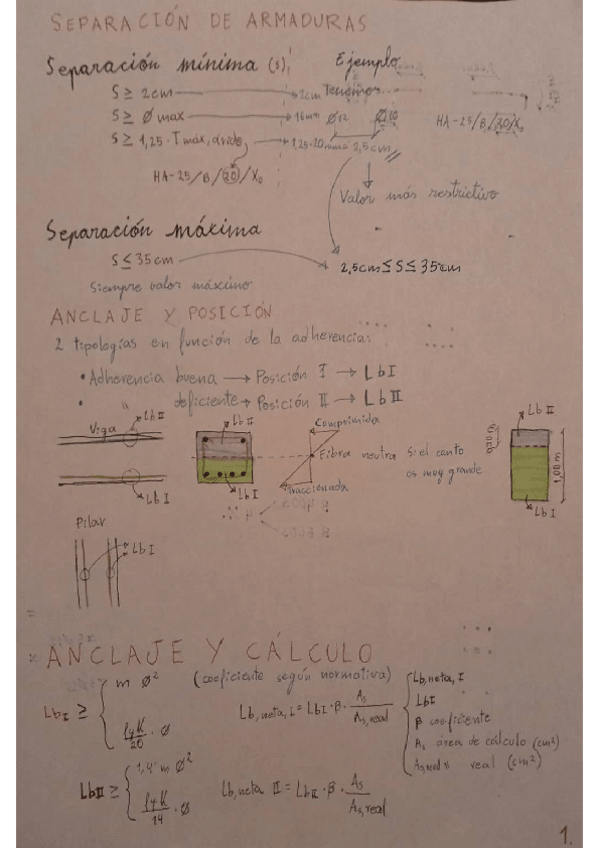 SEPARACIÓN DE ARMADURAS
Separación mínima (s)
Ejemplo
S ≥ 2cm → 2cm Tenemos
S ≥ Ø max → 16mm Ø12
S ≥ 1,25·Tmáx,árido → 1,25·20mm = 2,5cm
HA-25/B/20/X₀
HA-25/B/20/X₀
Valor más restrictivo
Separación máxima
S ≤ 35cm
2,5cm ≤ S ≤ 35cm
Siempre valor máximo
ANCLAJE Y POSICIÓN
2 tipologías en función de la adherencia:
• Adherencia buena → Posición I → LbI
• " deficiente → Posición II → LbII
Viga
LbII
LbI
LbII
LbI
Comprimida
Fibra neutra
Traccionada
Si el canto
es muy grande
LbII
1,00m
LbI
Pilar
LbI
ANCLAJE Y CÁLCULO
(coeficiente según normativa)
LbI ≥ m Ø²
fyk/20 · Ø
Lb,neta,I = LbI · β · As/As,real
Lb,neta,I
LbI
β coeficiente
As área de cálculo (cm²)
As,real " real (cm²)
LbII ≥ 1,4 m Ø²
fyk/14 · Ø
Lb,neta II = LbII · β · As/As,real
1.